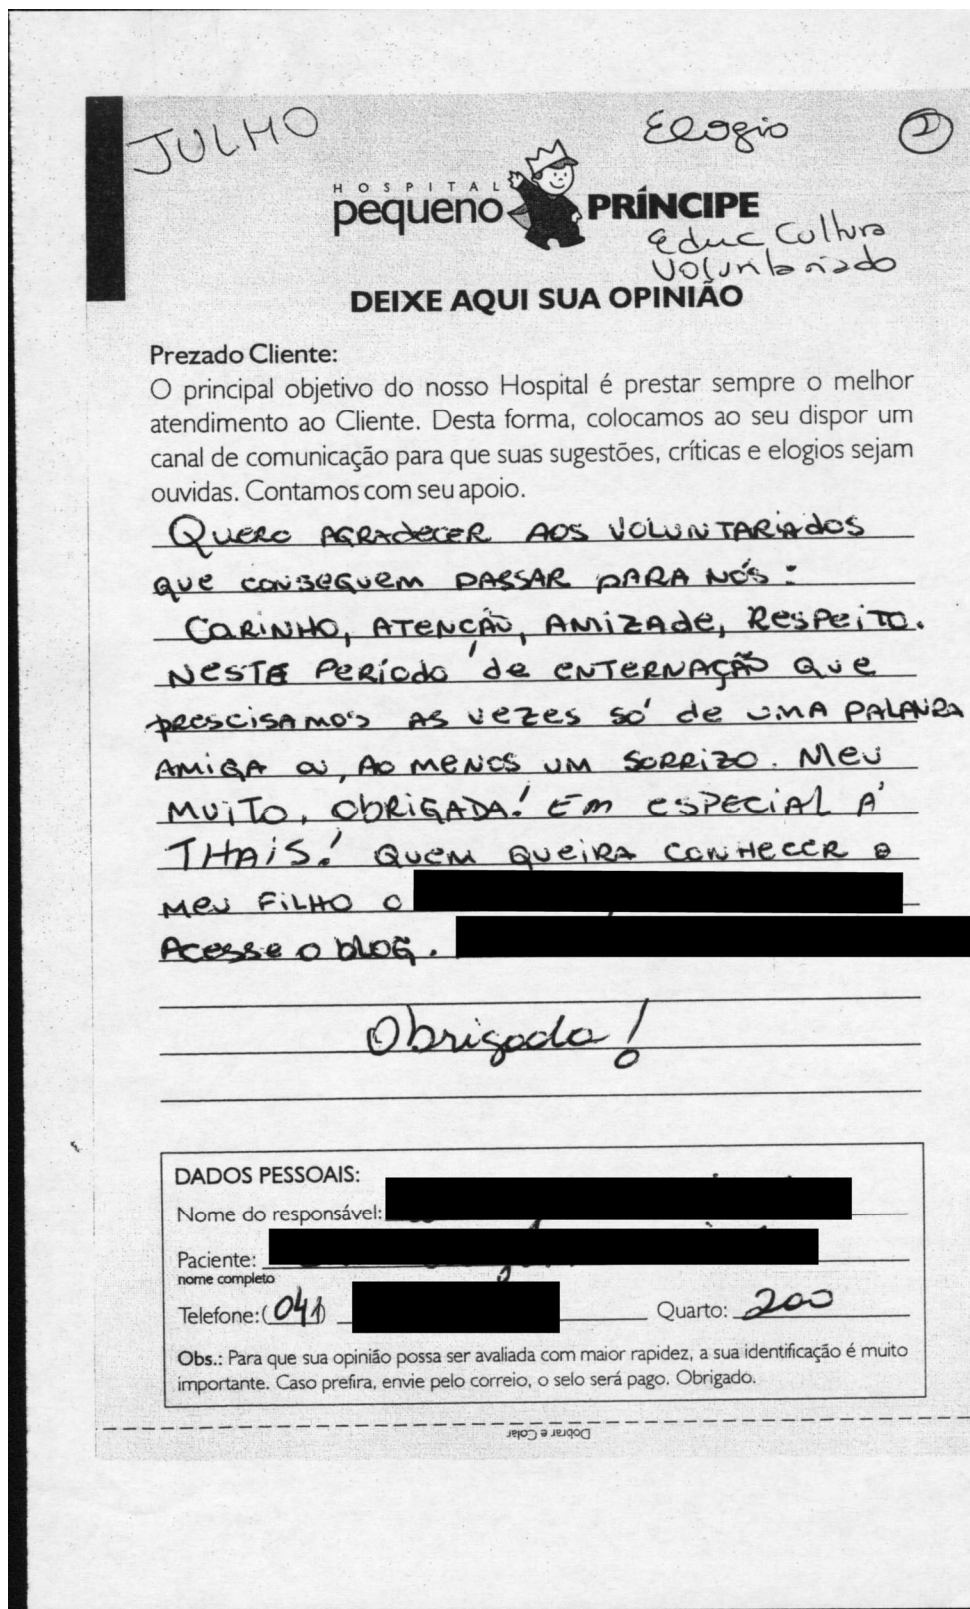 JULHO
Elogio
2
HOSPITAL
pequeno PRÍNCIPE
Educ Cultura
Voluntariado
DEIXE AQUI SUA OPINIÃO
Prezado Cliente:
O principal objetivo do nosso Hospital é prestar sempre o melhor
atendimento ao Cliente. Desta forma, colocamos ao seu dispor um
canal de comunicação para que suas sugestões, críticas e elogios sejam
ouvidas. Contamos com seu apoio.
QUERO AGRADECER AOS VOLUNTARIADOS
QUE CONSEGUEM PASSAR PARA NÓS:
CARINHO, ATENÇÃO, AMIZADE, RESPEITO.
NESTE PERÍODO DE ENTERNAÇÃO QUE
PRESCISAMOS AS VEZES SÓ DE UMA PALAVRA
AMIGA OU, AO MENOS UM SORRIZO. MEU
MUITO, OBRIGADA! EM ESPECIAL Á
THAIS! QUEM QUEIRA CONHECER O
MEU FILHO O
ACESSE O BLOG.
Obrigada!
DADOS PESSOAIS:
Nome do responsável:
Paciente:
nome completo
Telefone: (041) Quarto: 200
Obs.: Para que sua opinião possa ser avaliada com maior rapidez, a sua identificação é muito
importante. Caso prefira, envie pelo correio, o selo será pago. Obrigado.
Dobrar e Colar